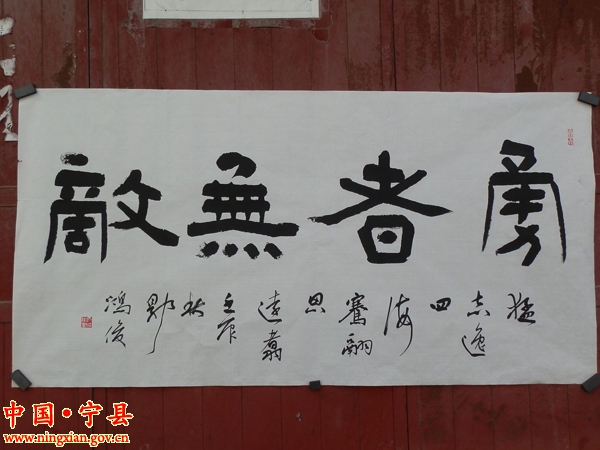 勇者無敵
猛
志逸
四
海
騫翮
思
遠翥
秋
鴻俊
中国·宁县
www.ningxian.gov.cn